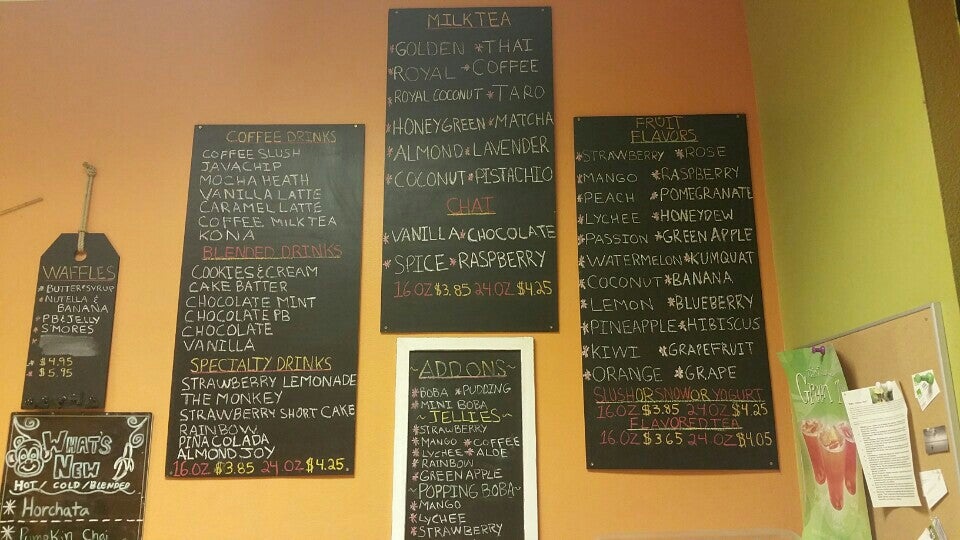 WAFFLES
*BUTTER&SYRUP
*NUTELLA &
BANANA
*PB&JELLY
*S'MORES
*$4.95
*$5.95
WHAT'S
NEW
HOT / COLD / BLENDED
* Horchata
* Pumpkin Chai
COFFEE DRINKS
COFFEE SLUSH
JAVA CHIP
MOCHA HEATH
VANILLA LATTE
CARAMEL LATTE
COFFEE MILK TEA
KONA
BLENDED DRINKS
COOKIES&CREAM
CAKE BATTER
CHOCOLATE MINT
CHOCOLATE PB
CHOCOLATE
VANILLA
SPECIALTY DRINKS
STRAWBERRY LEMONADE
THE MONKEY
STRAWBERRY SHORT CAKE
RAINBOW
PINA COLADA
ALMOND JOY
16 OZ $3.85 24 OZ $4.25.
MILK TEA
*GOLDEN *THAI
*ROYAL *COFFEE
*ROYAL COCONUT *TARO
*HONEY GREEN *MATCHA
*ALMOND *LAVENDER
*COCONUT *PISTACHIO
CHAI
*VANILLA *CHOCOLATE
*SPICE *RASPBERRY
16 OZ $3.85 24 OZ $4.25
~ADD ONS~
*BOBA *PUDDING
*MINI BOBA
~JELLIES~
*STRAWBERRY
*MANGO *COFFEE
*LYCHEE *ALOE
*RAINBOW
*GREEN APPLE
~POPPING BOBA~
*MANGO
*LYCHEE
*STRAWBERRY
FRUIT
FLAVORS
*STRAWBERRY *ROSE
*MANGO *RASPBERRY
*PEACH *POMEGRANATE
*LYCHEE *HONEYDEW
*PASSION *GREEN APPLE
*WATERMELON *KUMQUAT
*COCONUT *BANANA
*LEMON *BLUEBERRY
*PINEAPPLE *HIBISCUS
*KIWI *GRAPEFRUIT
*ORANGE *GRAPE
SLUSH OR SNOW OR YOGURT
16 OZ $3.85 24 OZ $4.25
FLAVORED TEA
16 OZ $3.65 24 OZ $4.05